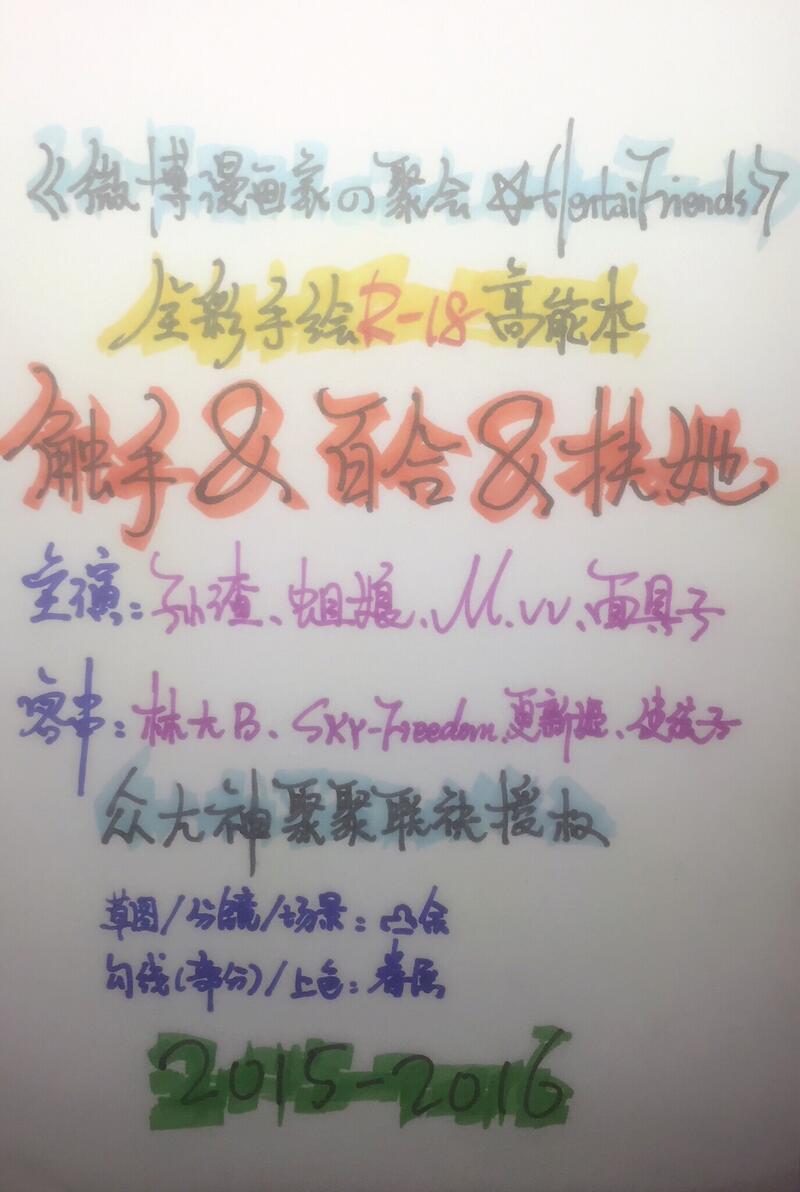 《微博漫画家の聚会☆HentaiFriends》
全彩手绘R-18高能本
触手&百合&扶她
主演：孙渣、蛆娘、M.w、面具子
客串：林大B、SKY-Freedom、更新姬、使徒子
众大神聚聚联袂授权
草图/分镜/场景：凸余
勾线(部分)/上色：
2015-2016